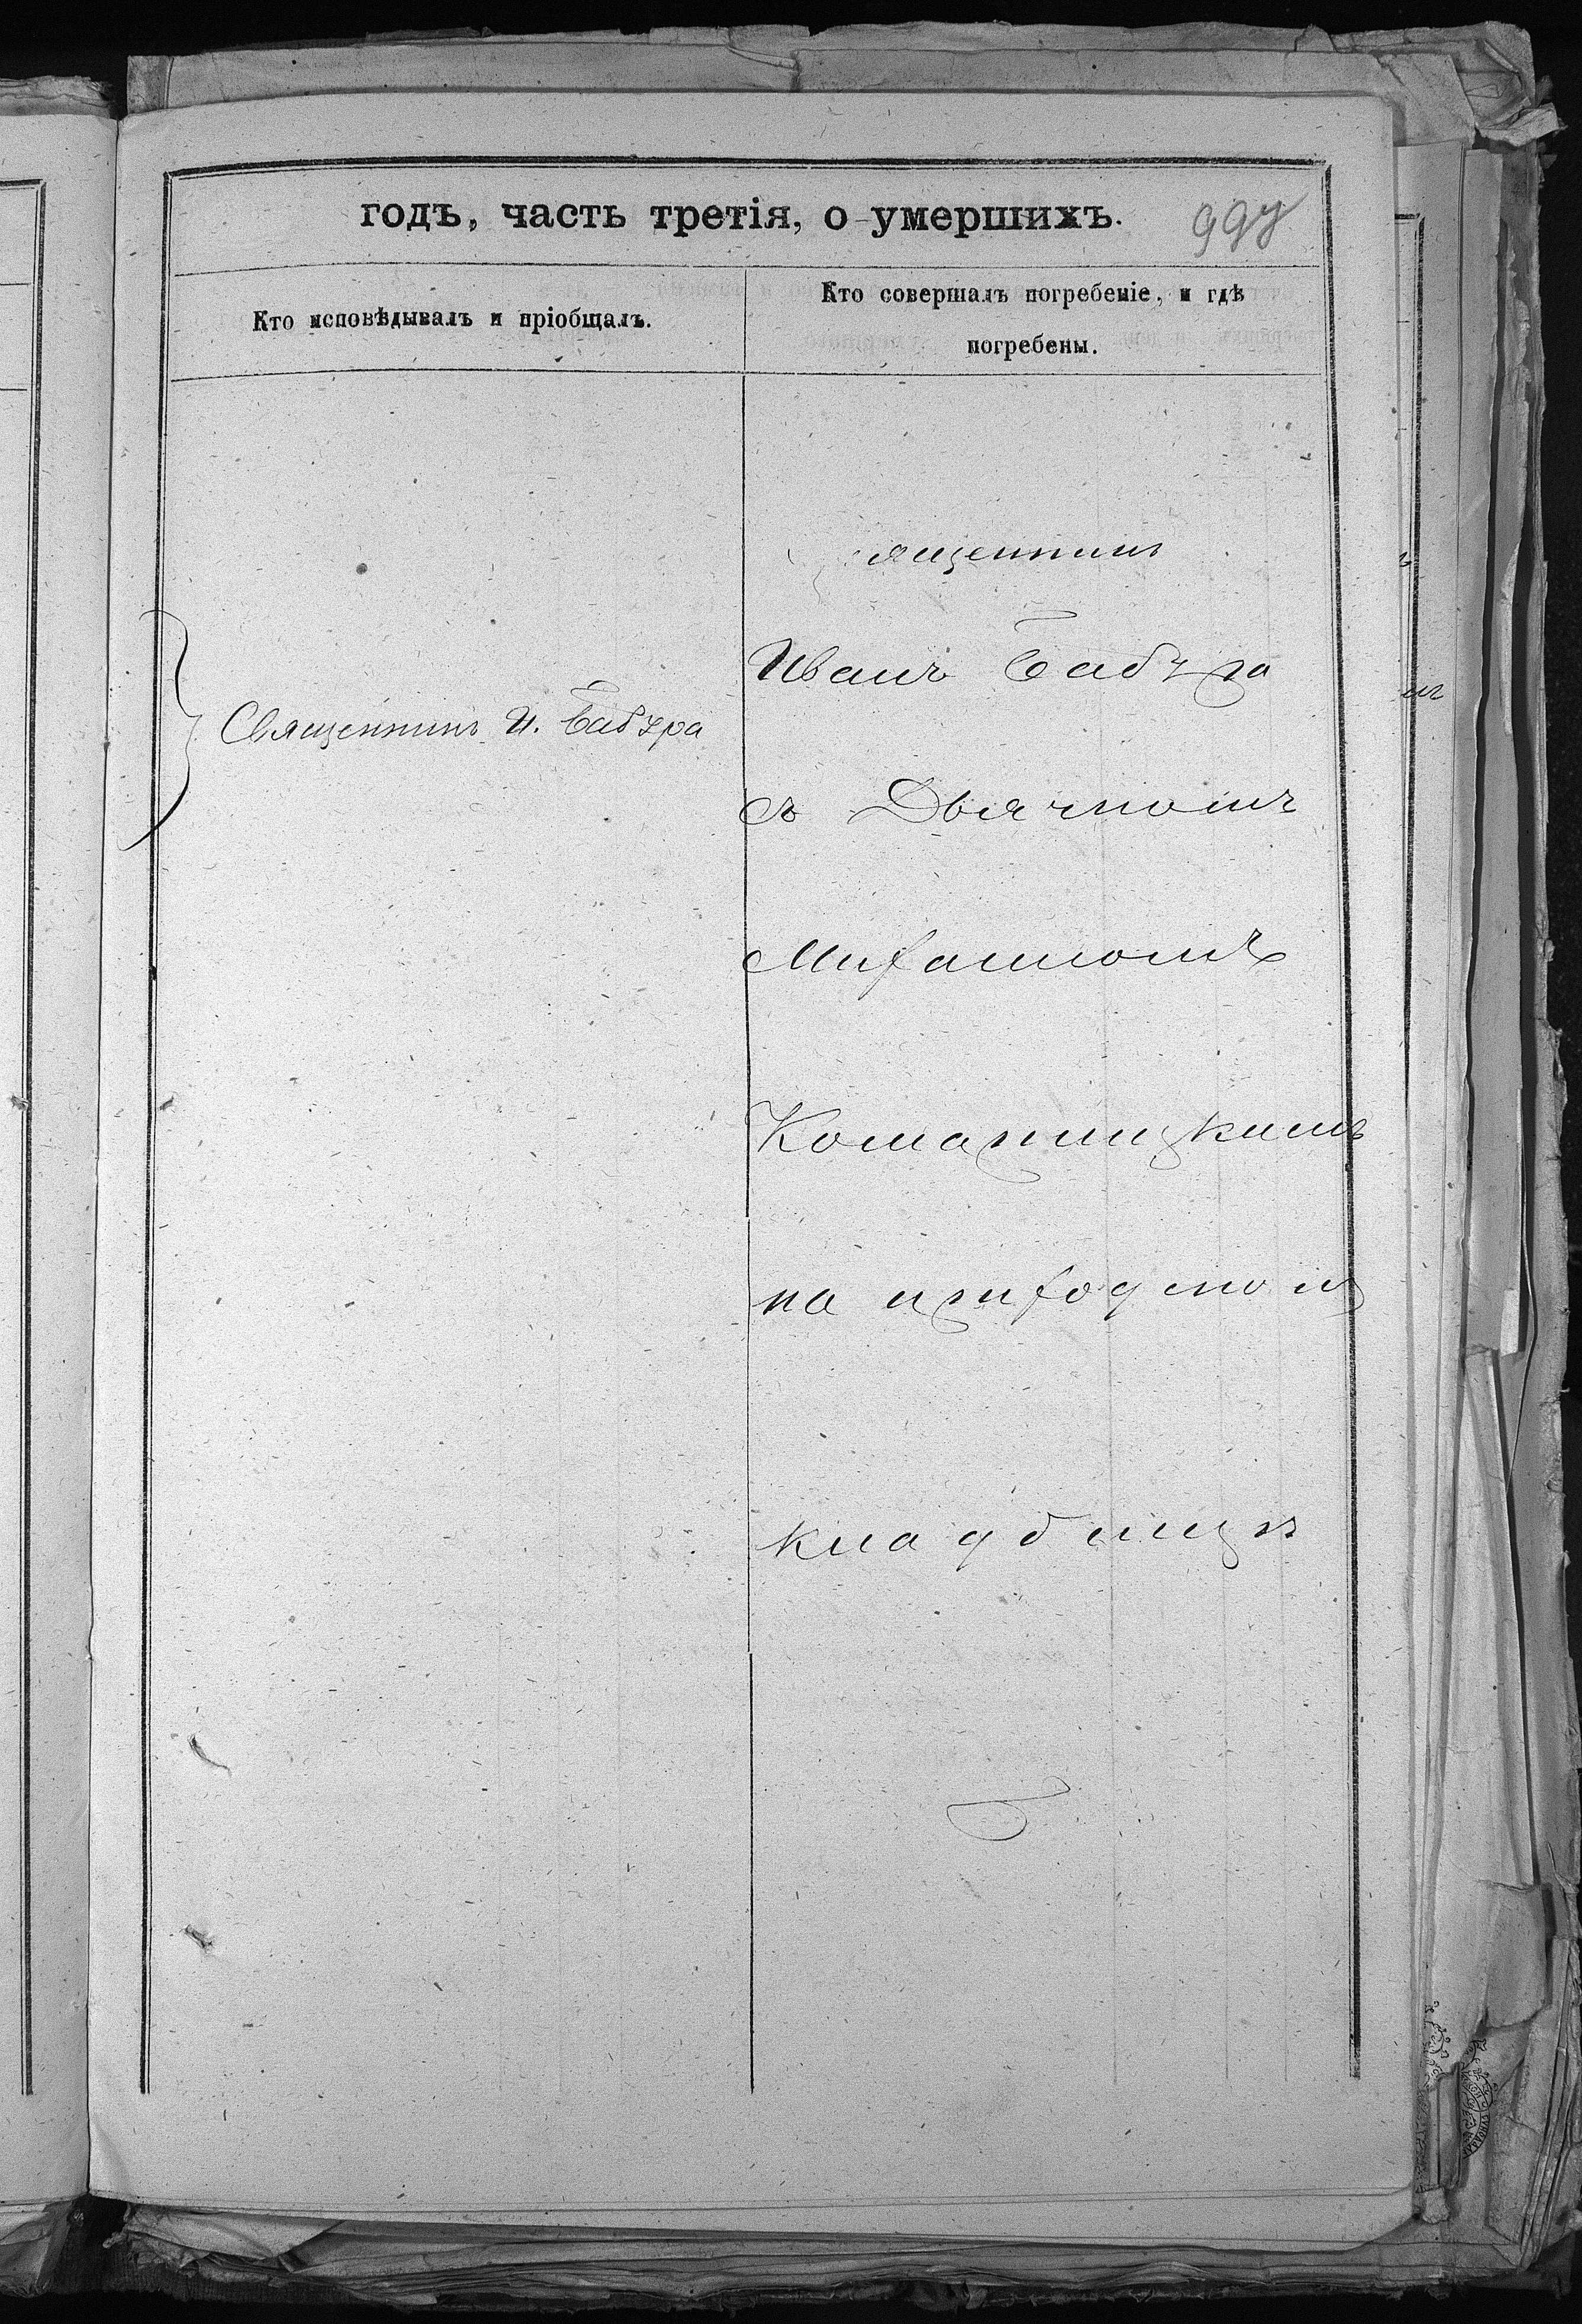 годъ, часть третія, о умершихъ.
997
Кто исповѣдывалъ и пріобщалъ.
Кто совершалъ погребеніе, и гдѣ
погребены.
Священникъ
Иванъ Бабура
Священникъ И. Бабура
съ Дьячкомъ
Михаиломъ
Комарницкимъ
на приходском
кладбищѣ